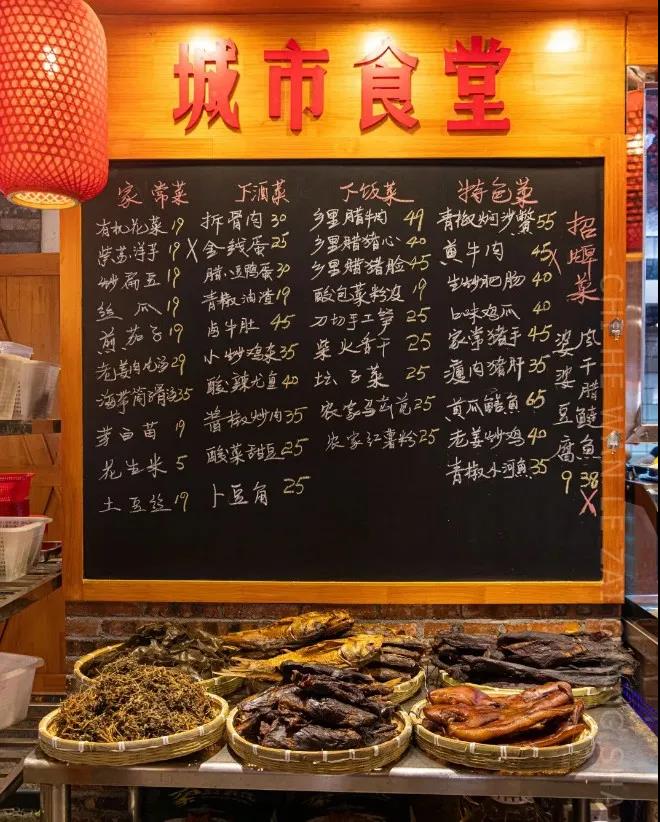 城市食堂
家常菜
有机花菜 19
紫苏洋芋 19
炒扁豆 19
丝瓜 19
煎茄子 19
老姜肉丸汤 29
海带筒子骨汤 35
茅白苗 19
花生米 5
土豆丝 19
下酒菜
拆骨肉 30
X 金钱蛋 25
腊八豆鸭蛋 30
青椒油渣 19
卤牛肚 45
小炒鸡杂 35
酸辣尤鱼 40
酱椒炒肉 35
酸菜甜豆 25
卜豆角 25
下饭菜
乡里腊牛肉 49
乡里腊猪心 40
乡里腊猪脸 45
酸包菜粉皮 19
刀切手工笋 25
柴火香干 25
坛子菜 25
农家马齿苋 25
农家红薯粉 25
特色菜
青椒焖沙鳖 55
黄牛肉 45 X
生炒肥肠 40
口味鸡爪 40
家常猪手 45
瘦肉猪肝 35
黄瓜鳝鱼 65
老姜炒鸡 40
青椒小河鱼 35
招牌菜
婆婆豆腐 9
风干腊鲢鱼 38 X